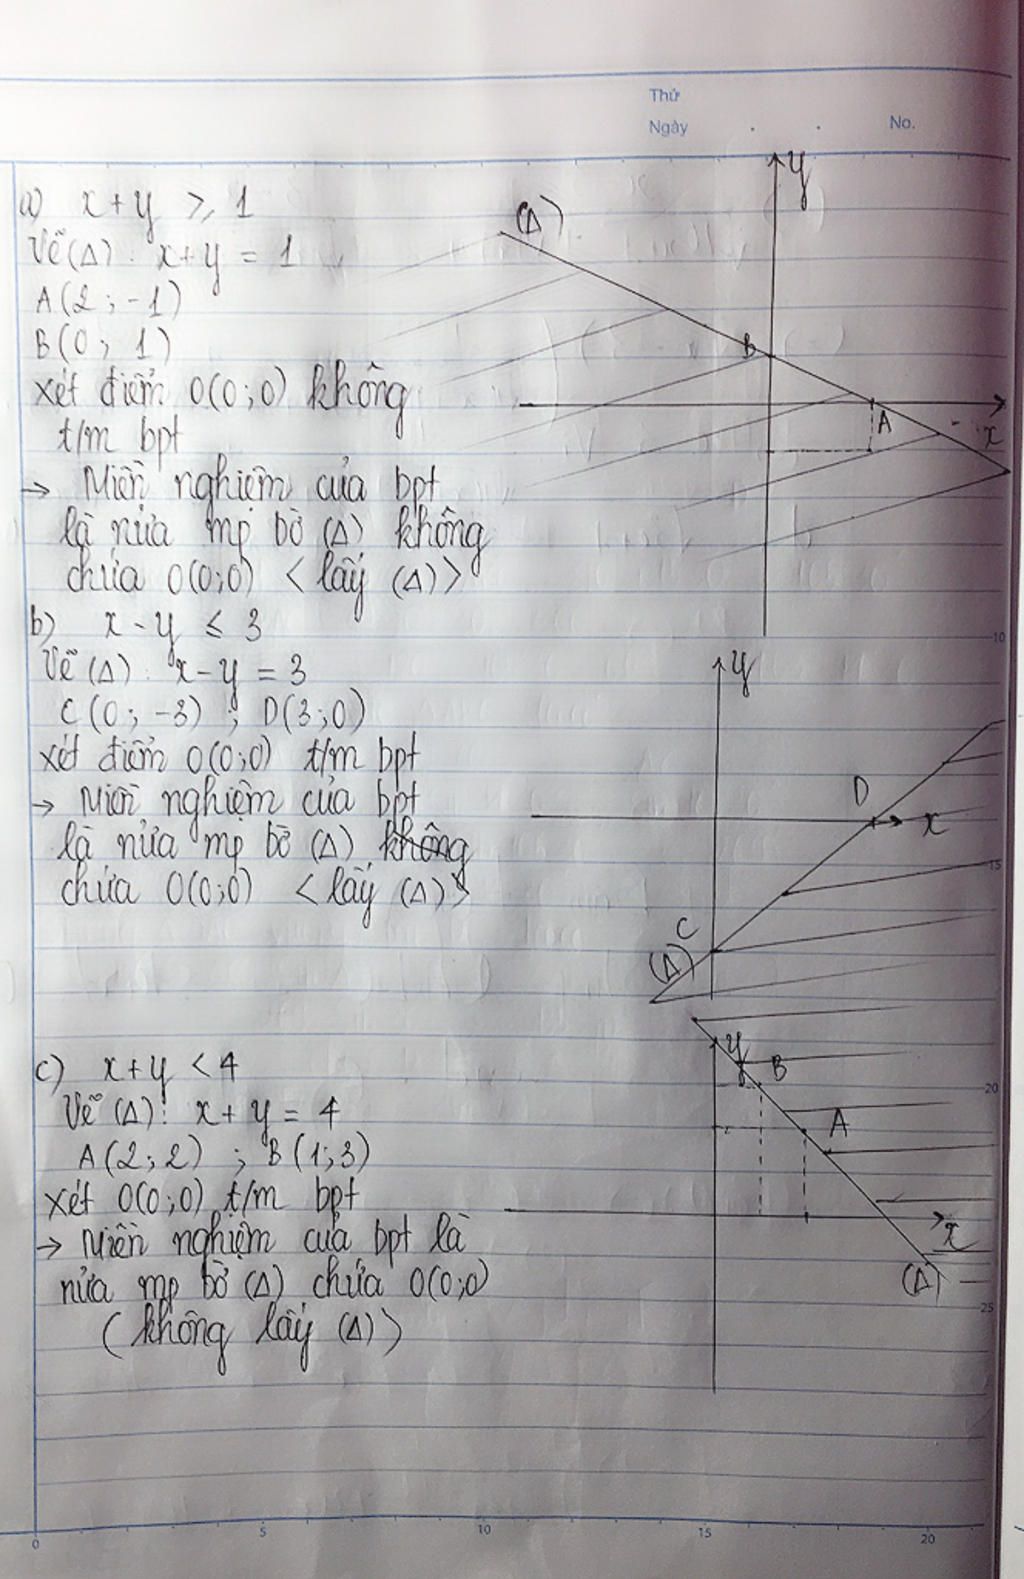 Thứ
Ngày . . No.
a) x + y ⩾ 1
Vẽ (Δ) : x + y = 1
A(2 ; -1)
B(0 ; 1)
xét điểm O(0;0) không
t/m bpt
→ Miền nghiệm của bpt
là nửa mp bờ (Δ) không
chứa O(0;0) < lấy (Δ)>
(Δ)
y
B
A
x
b) x - y ≤ 3
Vẽ (Δ) : x - y = 3
C(0 ; -3) ; D(3;0)
xét điểm O(0;0) t/m bpt
→ Miền nghiệm của bpt
là nửa mp bờ (Δ) không
chứa O(0;0) < lấy (Δ)>
y
D
x
C
(Δ)
c) x + y < 4
Vẽ (Δ) : x + y = 4
A(2;2) ; B(1;3)
xét O(0;0) t/m bpt
→ Miền nghiệm của bpt là
nửa mp bờ (Δ) chứa O(0;0)
( không lấy (Δ)>
y
B
A
x
(Δ)
10
15
20
25
0 5 10 15 20